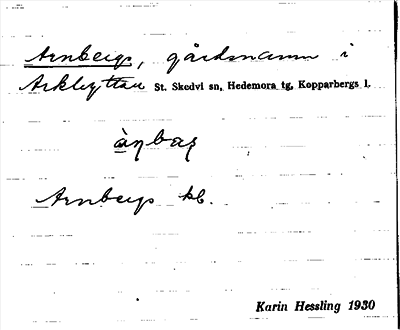 Arnbergs, gårdsnamn i
Arkhyttan St. Skedvi sn, Hedemora tg, Kopparbergs l.
àŋbaʂ
Arnbergs kb.
Karin Hessling 1930